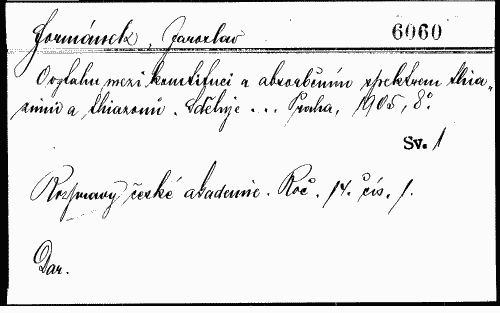 Formánek, Jaroslav 6060
O vztahu mezi konstitucí a absorbčním spektrem thia-
zinů a thiazonů. Sděluje ... Praha, 1905, 8°.
Sv. 1
Rozpravy české akademie. Roč. 14. čís. 1.
Dar.